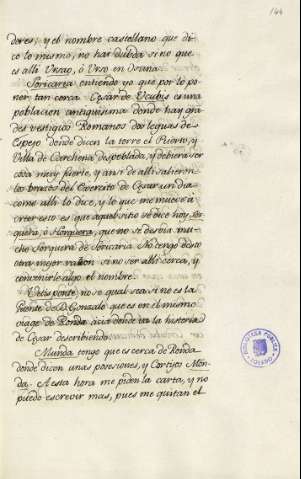 144
dores, y el nombre castellano que di-
ce lo mesmo, no hai dubda si no que
es alli Ursao, ó Urso en Osuna.
Soricaria entiendo yo que por lo po-
ner tan cerca Cesar de Ucubis es una
poblacion antiquisima donde hay grã
des vestigios Romanos dos leguas de
Espejo donde dicen la torre el Puerto, y
Villa de Carchena despoblada, y debiera ser
cosa muy fuerte, y ansi de alli salieron
los brazos del Exercito de Cesar un dia
como alli lo dice, y lo que me mueve á
creer esto es que aquel sitio se dice hoy
que no se desvia mu-
cho de Soricaria. No tengo desto
otra mejor razon si no ser alli cerca, y
convenirle algo el nombre.
ponte, no se qual sea si no es la
Puente de D. Gonzalo que es en el mismo
viage de Ronda acia donde va la historia
de Cesar describiendo.
Munda tengo que es cerca de Ronda
donde dicen unas posesiones, y Cortijo Mon-
da. A esta hora me piden la carta, y no
puedo escrevir mas, pues me quitan el
BIBLIOTECA PUBLICA
TOLEDO